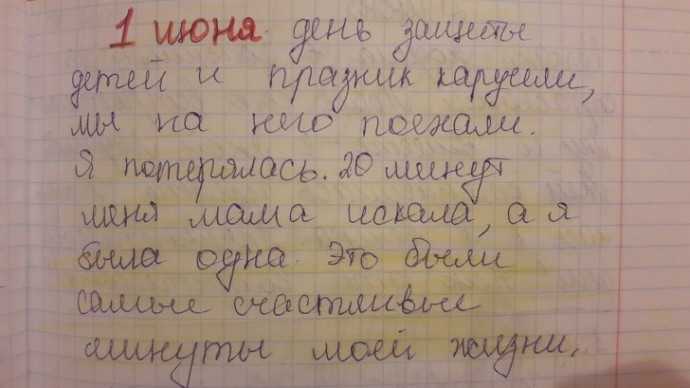 1 июня день защиты
детей и празник карусели,
мы на него поехали.
Я потерялась. 20 минут
меня мама искала, а я
была одна. Это были
самые счастливые
минуты моей жизни.